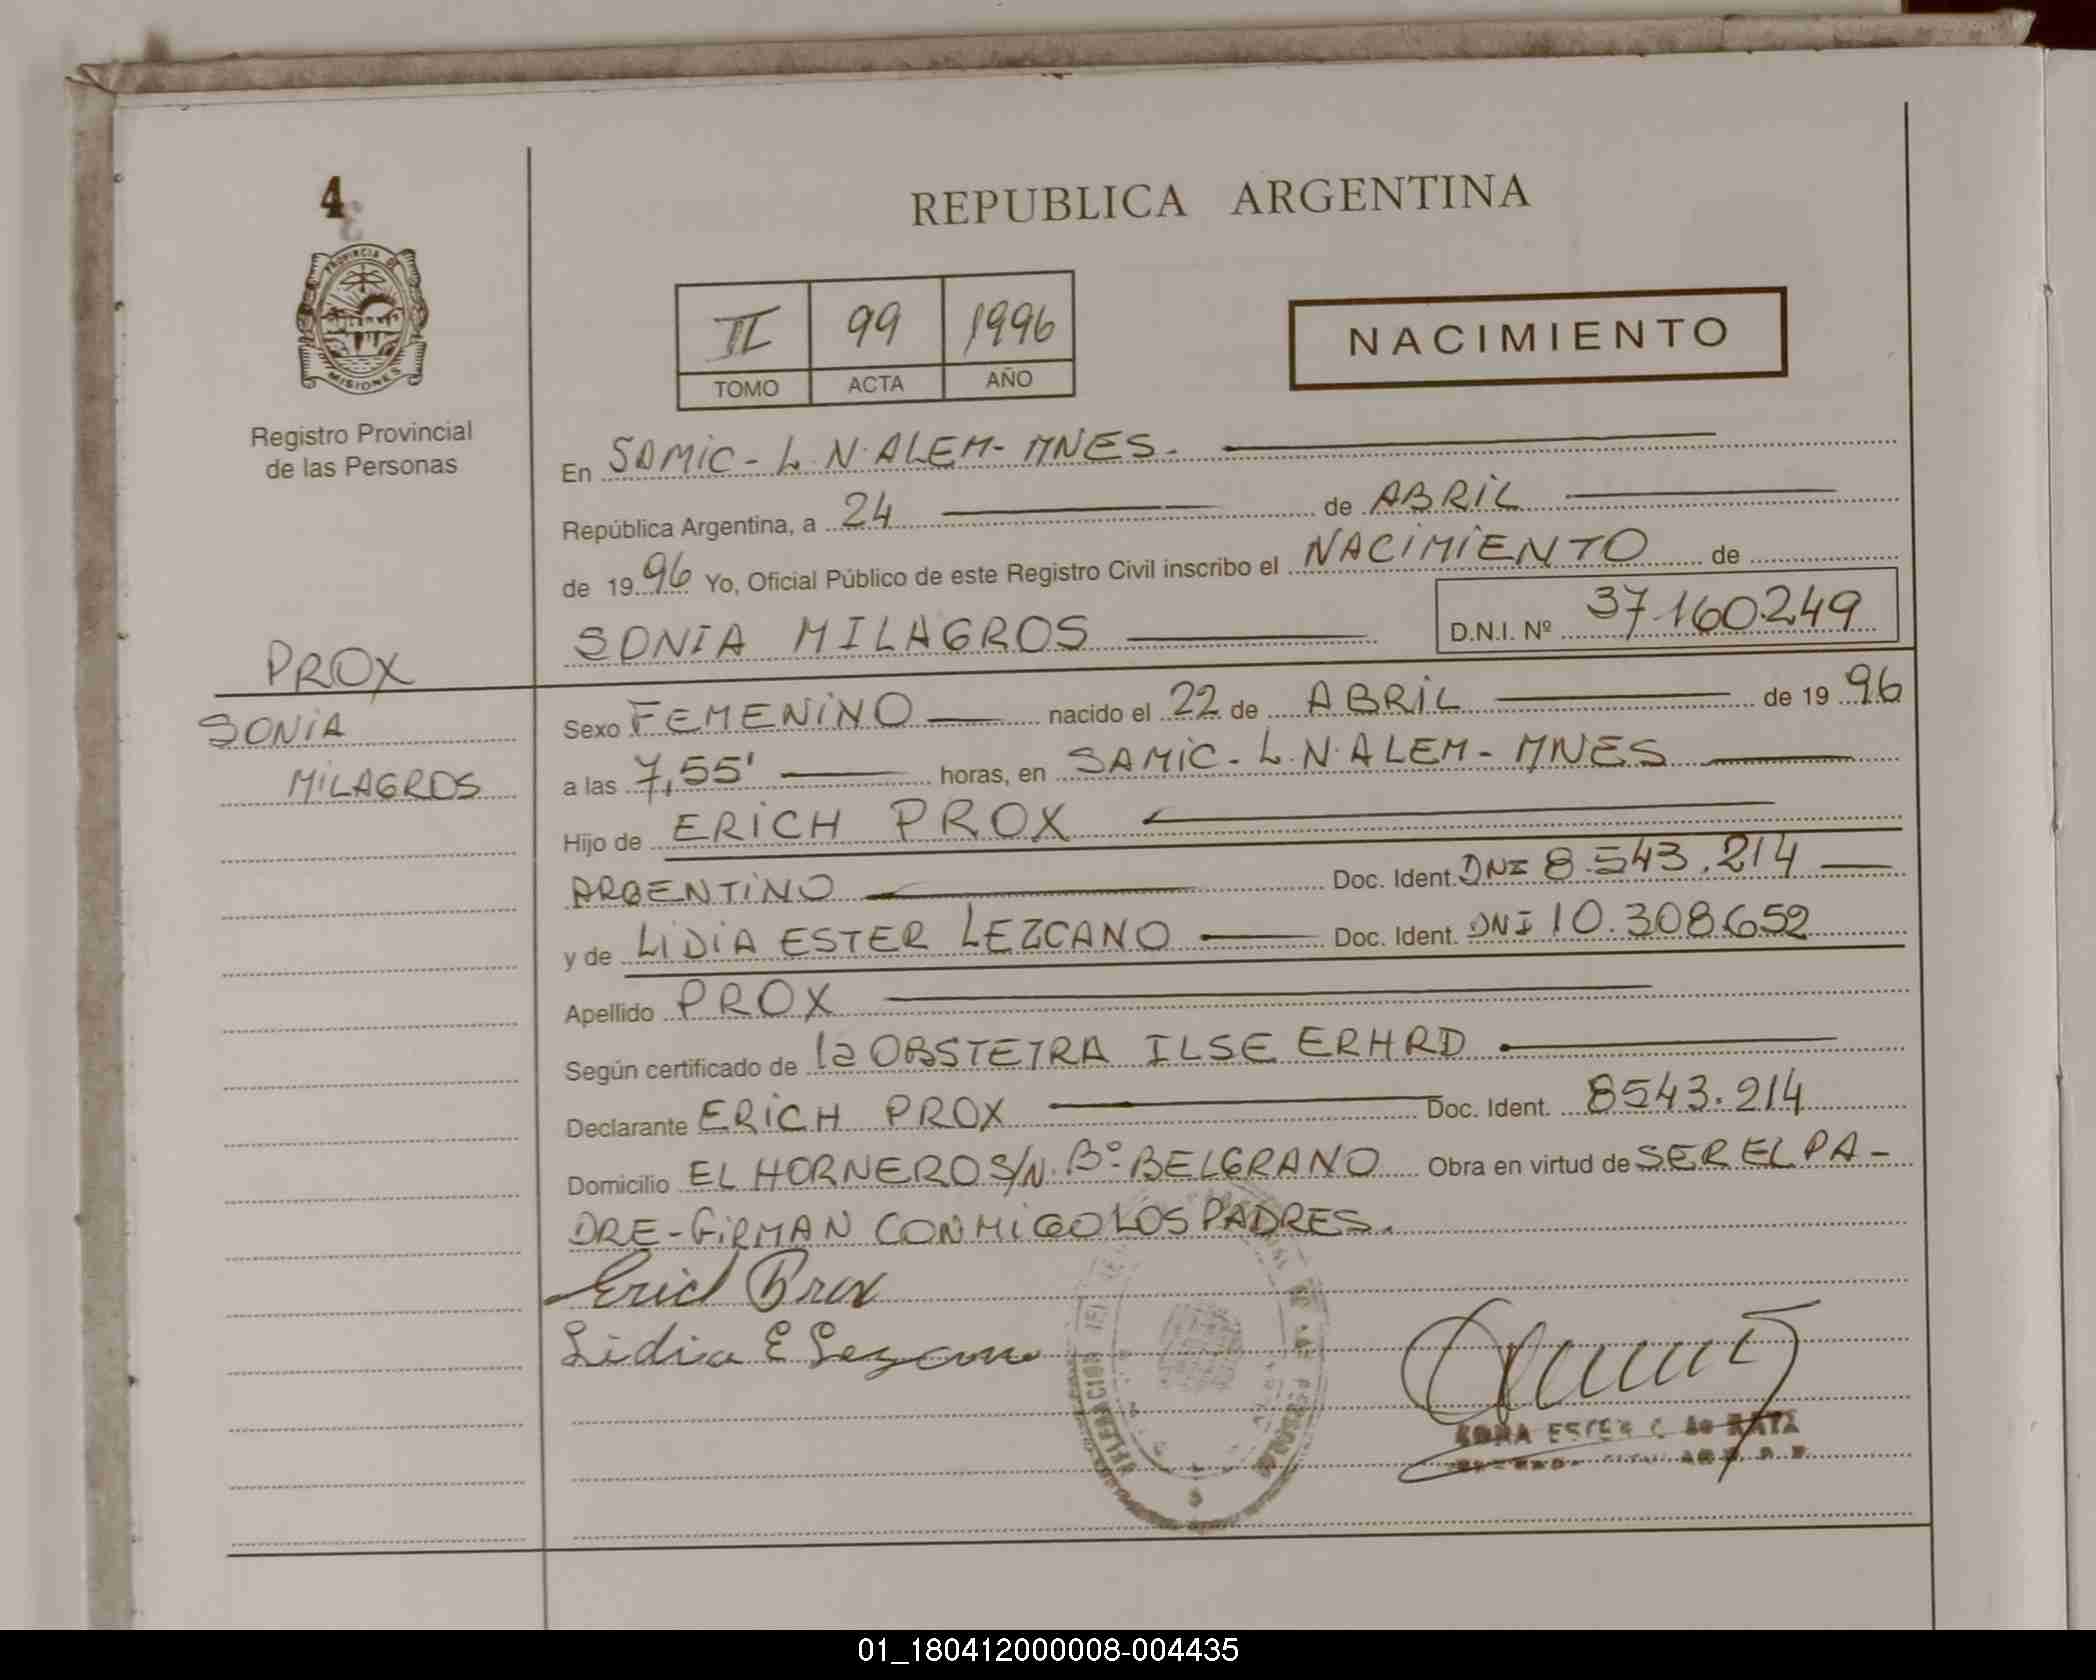 4
PROVINCIA DE
MISIONES
Registro Provincial
de las Personas
PROX
SONIA
MILAGROS
REPUBLICA ARGENTINA
II 99 1996
TOMO ACTA AÑO
NACIMIENTO
En SAMIC - L. N. ALEM - MNES.
República Argentina, a 24 de ABRIL
de 1996 Yo, Oficial Público de este Registro Civil inscribo el NACIMIENTO de
SONIA MILAGROS D.N.I. Nº 37.160.249
Sexo FEMENINO nacido el 22 de ABRIL de 1996
a las 7,55' horas, en SAMIC - L. N. ALEM - MNES
Hijo de ERICH PROX
ARGENTINO Doc. Ident. DNI 8.543.214
y de LIDIA ESTER LEZCANO Doc. Ident. DNI 10.308.652
Apellido PROX
Según certificado de la OBSTETRA ILSE ERHRD
Declarante ERICH PROX Doc. Ident. 8543.214
Domicilio EL HORNERO S/N. Bº BELGRANO Obra en virtud de SER EL PA-
DRE - FIRMAN CONMIGO LOS PADRES.
Erich Prox
Lidia E Lezcano
01_180412000008-004435